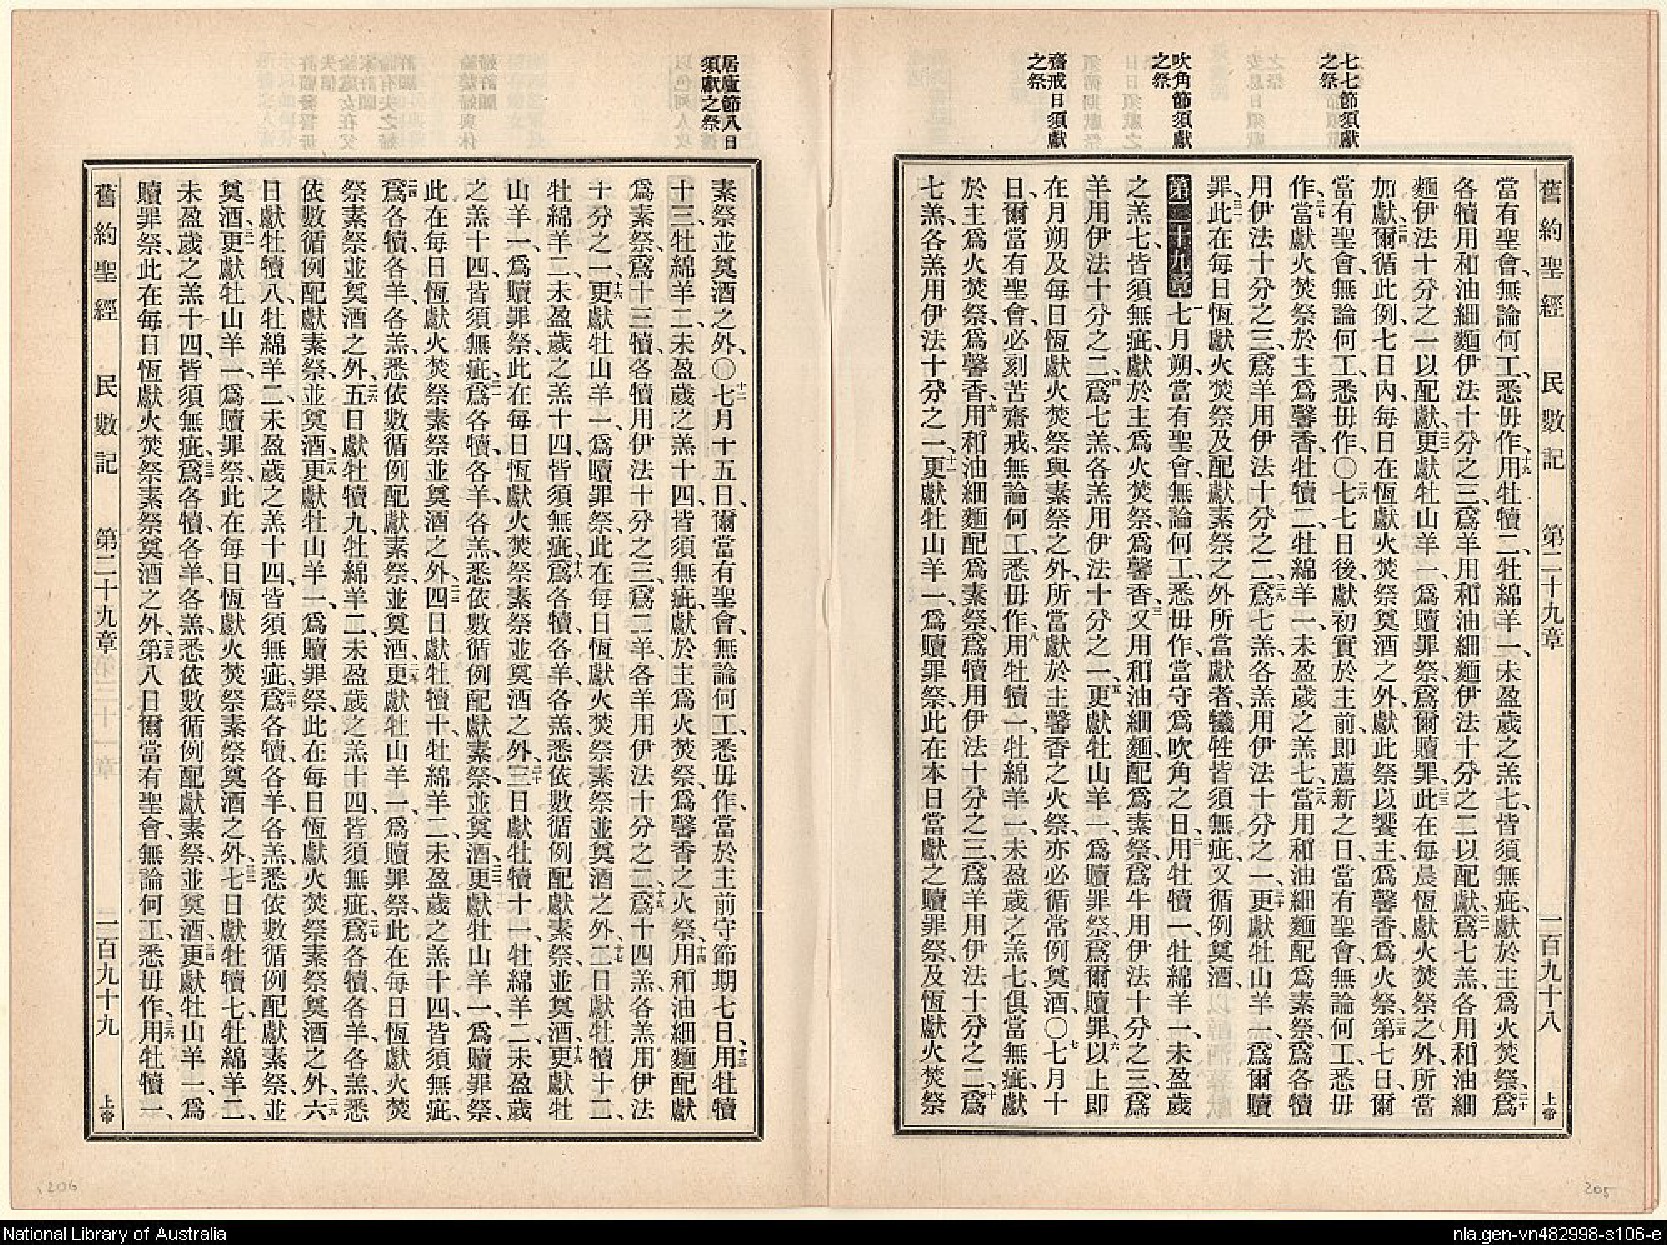 七七節須獻
之祭
吹角節須獻
之祭
齋戒日須獻
之祭
舊約聖經 民數記 第二十九章 一百九十八 上帝
當有聖會、無論何工、悉毋作、十九用牡犢二、牡綿羊一、未盈歲之羔七、皆須無疵、獻於主爲火焚祭、二十爲
各犢用和油細麵伊法十分之三、爲羊用和油細麵伊法十分之二以配獻、二一爲七羔、各用和油細
麵伊法十分之一以配獻、二二更獻牡山羊一、爲贖罪祭、爲爾贖罪、二三此在每晨恆獻火焚祭之外、所當
加獻、二四爾循此例、七日內每日在恆獻火焚祭奠酒之外、獻此祭以饗主、爲馨香、爲火祭、二五第七日、爾
當有聖會、無論何工、悉毋作、〇二六七七日後、獻初實於主前、即薦新之日、當有聖會、無論何工、悉毋
作、二七當獻火焚祭於主爲馨香、牡犢二、牡綿羊一、未盈歲之羔七、二八當用和油細麵配爲素祭、爲各犢
用伊法十分之三、爲羊用伊法十分之二、二九爲七羔、各羔用伊法十分之一、三十更獻牡山羊一、爲爾贖
罪、三一此在每日恆獻火焚祭及配獻素祭之外、所當獻者、犧牲皆須無疵、又循例奠酒、
第二十九章 一七月朔、當有聖會、無論何工、悉毋作、當守爲吹角之日、二用牡犢一、牡綿羊一、未盈歲
之羔七、皆須無疵、獻於主爲火焚祭、爲馨香、三又用和油細麵、配爲素祭、爲牛用伊法十分之三、爲
羊用伊法十分之二、四爲七羔、各羔用伊法十分之一、五更獻牡山羊一、爲贖罪祭、爲爾贖罪、六以上即
在月朔及每日恆獻火焚祭與素祭之外、所當獻於主馨香之火祭、亦必循常例奠酒、〇七七月十
日、爾當有聖會、必刻苦齋戒、無論何工、悉毋作、八用牡犢一、牡綿羊一、未盈歲之羔七、俱當無疵、獻
於主爲火焚祭、爲馨香、九用和油細麵配爲素祭、爲犢用伊法十分之三、爲羊用伊法十分之二、十爲
七羔、各羔用伊法十分之一、十一更獻牡山羊一、爲贖罪祭、此在本日當獻之贖罪祭、及恆獻火焚祭
205
居廬節八日
須獻之祭
素祭並奠酒之外、〇十二七月十五日、爾當有聖會、無論何工、悉毋作、當於主前守節期七日、十三用牡犢
十三、牡綿羊二、未盈歲之羔十四、皆須無疵、獻於主爲火焚祭、爲馨香之火祭、十四用和油細麵配獻
爲素祭、爲十三犢、各犢用伊法十分之三、爲二羊、各羊用伊法十分之二、十五爲十四羔、各羔用伊法
十分之一、十六更獻牡山羊一、爲贖罪祭、此在每日恆獻火焚祭素祭並奠酒之外、十七二日獻牡犢十二、
牡綿羊二、未盈歲之羔十四、皆須無疵、十八爲各犢、各羊、各羔、悉依數循例配獻素祭、並奠酒、十九更獻牡
山羊一、爲贖罪祭、此在每日恆獻火焚祭素祭並奠酒之外、二十三日獻牡犢十一、牡綿羊二、未盈歲
之羔十四、皆須無疵、二一爲各犢、各羊、各羔、悉依數循例配獻素祭、並奠酒、二二更獻牡山羊一、爲贖罪祭、
此在每日恆獻火焚祭素祭並奠酒之外、二三四日獻牡犢十、牡綿羊二、未盈歲之羔十四、皆須無疵、
二四爲各犢、各羊、各羔、悉依數循例配獻素祭、並奠酒、二五更獻牡山羊一、爲贖罪祭、此在每日恆獻火焚
祭素祭並奠酒之外、二六五日獻牡犢九、牡綿羊二、未盈歲之羔十四、皆須無疵、二七爲各犢、各羊、各羔、悉
依數循例配獻素祭、並奠酒、二八更獻牡山羊一、爲贖罪祭、此在每日恆獻火焚祭素祭奠酒之外、二九六
日獻牡犢八、牡綿羊二、未盈歲之羔十四、皆須無疵、三十爲各犢、各羊、各羔、悉依數循例配獻素祭、並
奠酒、三一更獻牡山羊一、爲贖罪祭、此在每日恆獻火焚祭素祭奠酒之外、三二七日獻牡犢七、牡綿羊二、
未盈歲之羔十四、皆須無疵、三三爲各犢、各羊、各羔、悉依數循例配獻素祭、並奠酒、三四更獻牡山羊一、爲
贖罪祭、此在每日恆獻火焚祭素祭奠酒之外、三五第八日爾當有聖會、無論何工、悉毋作、三六用牡犢一、
舊約聖經 民數記 第二十九章 一百九十九 上帝
206
National Library of Australia
nla.gen-vn482998-s106-e